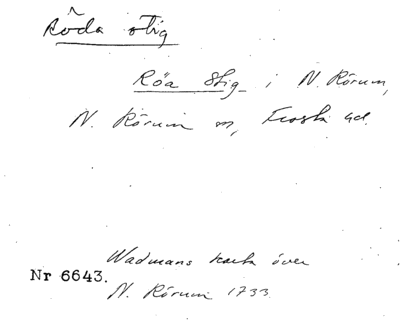 Röda stig
Röa Stig i N. Rörum,
N. Rörum sn, Frosta hd.
Wadmans karta över
Nr 6643.
N. Rörum 1733